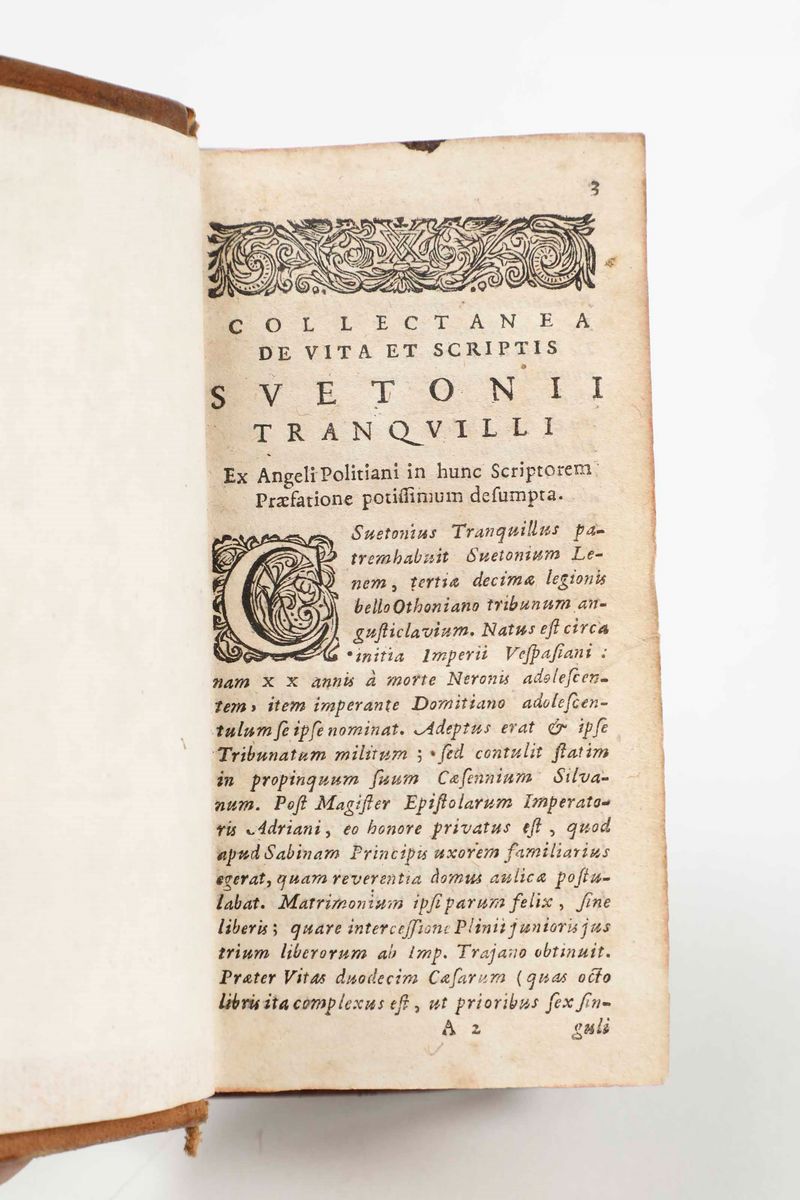 3
COLLECTANEA
DE VITA ET SCRIPTIS
SVETONII
TRANQVILLI
Ex Angeli Politiani in hunc Scriptorem
Præfatione potiſſimum deſumpta.
C Suetonius Tranquillus pa-
trem habuit Suetonium Le-
nem, tertiæ decimæ legionis
bello Othoniano tribunum an-
guſticlavium. Natus eſt circa
initia Imperii Veſpaſiani :
nam xx annis à morte Neronis adoleſcen-
tem, item imperante Domitiano adoleſcen-
tulum ſe ipſe nominat. Adeptus erat & ipſe
Tribunatum militum ; ſed contulit ſtatim
in propinquum ſuum Cæſennium Silva-
num. Poſt Magiſter Epiſtolarum Imperato-
ris Adriani, eo honore privatus eſt, quod
apud Sabinam Principis uxorem familiarius
egerat, quam reverentia domus aulicæ poſtu-
labat. Matrimonium ipſi parum felix, ſine
liberis ; quare interceſſione Plinii junioris jus
trium liberorum ab Imp. Trajano obtinuit.
Præter Vitas duodecim Cæſarum (quas octo
libris ita complexus eſt, ut prioribus ſex ſin-
A 2 guli